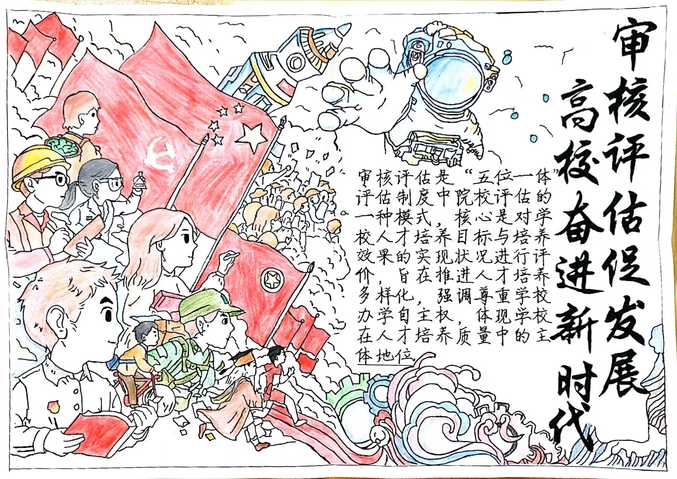 审核评估促发展
高校奋进新时代
审核评估是“五位一体”
评估制度中，院校评估的
一种模式，核心是对学
校人才培养目标与培养
效果的实现状况进行评
价，旨在推进人才培养
多样化，强调尊重学校
办学自主权，体现学校
在人才培养质量中的主
体地位